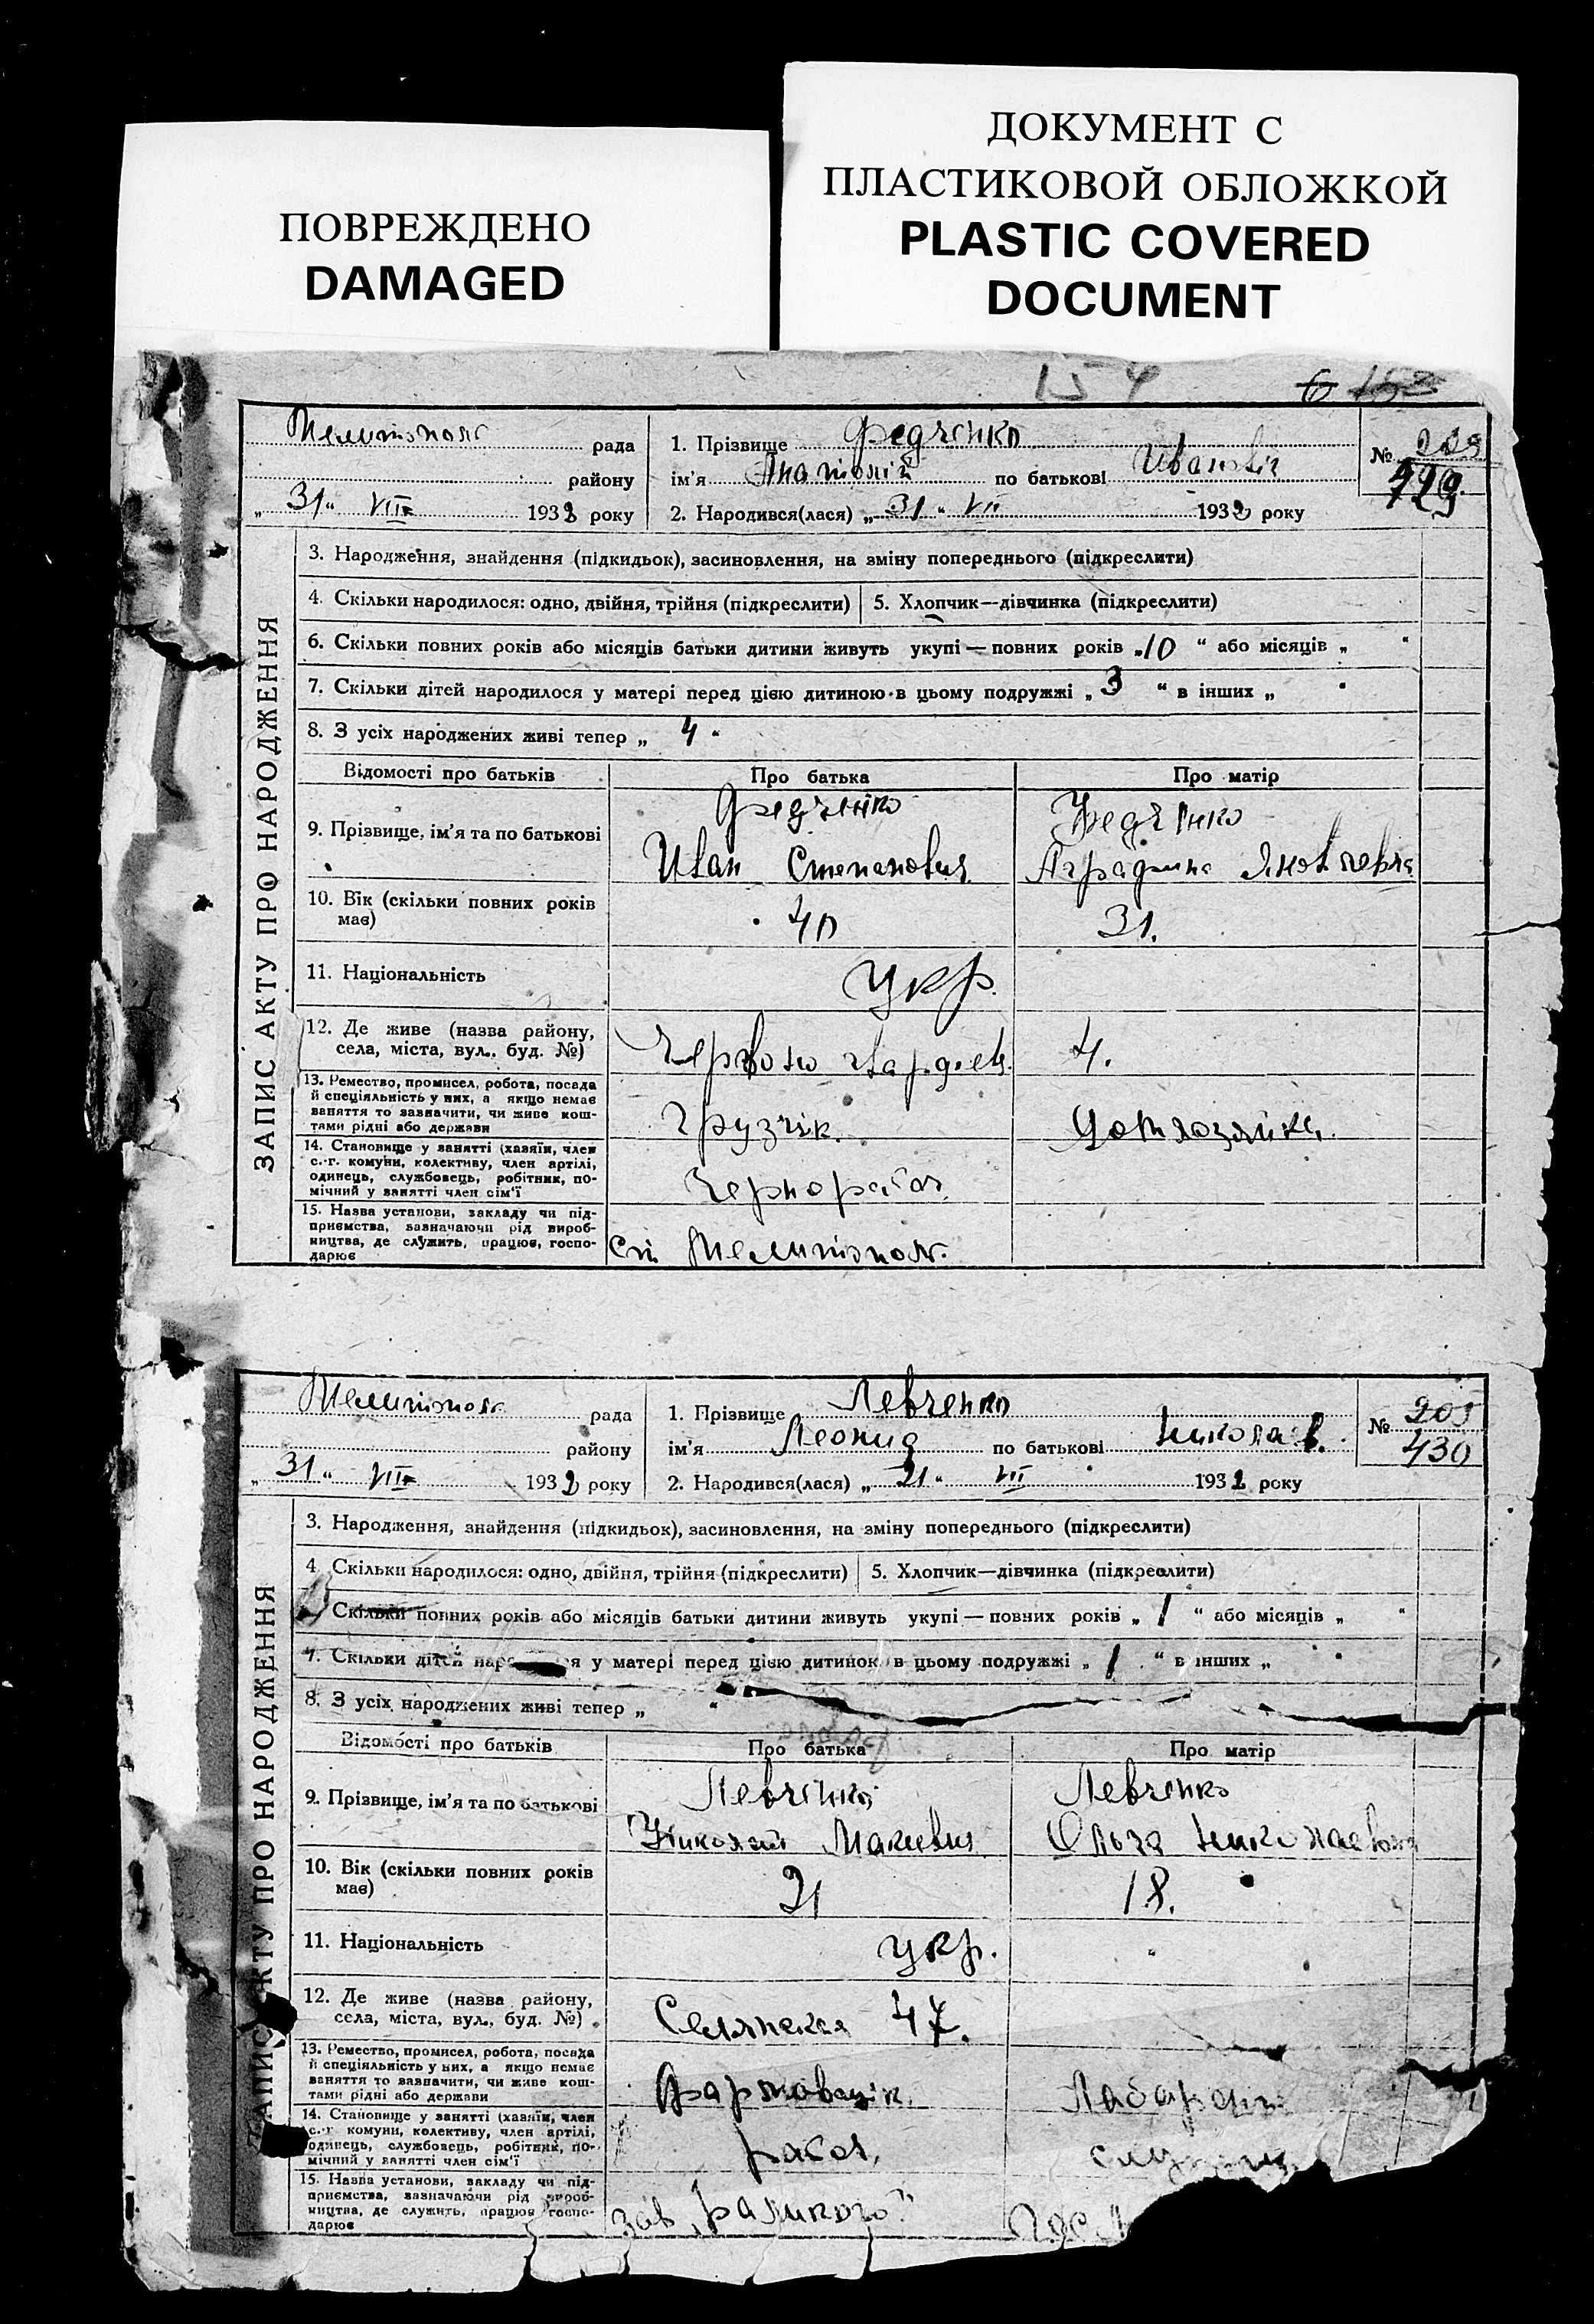 ПОВРЕЖДЕНО
DAMAGED
ДОКУМЕНТ С
ПЛАСТИКОВОЙ ОБЛОЖКОЙ
PLASTIC COVERED
DOCUMENT
154
Мелитополь рада
району
„31“ VII 1932 року
1. Прізвище Федченко
ім'я Анатолій по батькові Иванович
2. Народився(лася) „31“ VII 1932 року
№ 429
ЗАПИС АКТУ ПРО НАРОДЖЕННЯ
3. Народження, знайдення (підкидьок), засиновлення, на зміну попереднього (підкреслити)
4. Скільки народилося: одно, двійня, трійня (підкреслити) 5. Хлопчик—дівчинка (підкреслити)
6. Скільки повних років або місяців батьки дитини живуть укупі — повних років „10 “ або місяців „ “
7. Скільки дітей народилося у матері перед цією дитиною в цьому подружжі „ 3 “ в інших „ “
8. З усіх народжених живі тепер „ 4 “
Відомості про батьків Про батька Про матір
9. Прізвище, ім'я та по батькові
Федченко Федченко
Иван Степанович Яковлевна
10. Вік (скільки повних років має) 40 31.
11. Національність укр.
12. Де живе (назва району, села, міста, вул., буд. №) 4.
13. Ремество, промисел, робота, посада й спеціяльність у них, а якщо немає заняття то зазначити, чи живе коштами рідні або держави
Грузчик. Домхозяйка.
14. Становище у занятті (хазяїн, член с.-г. комуни, колективу, член артілі, одинець, службовець, робітник, помічний у занятті член сім'ї
Чернорабоч.
15. Назва установи, закладу чи підприємства, зазначаючи рід виробництва, де служить, працює, господарює
Ст Мелитополь.
Мелитополь рада
району
„31“ VII 1932 року
1. Прізвище Левченко
ім'я Леонид по батькові Николаев.
2. Народився(лася) „21“ VII 1932 року
№ 430
ЗАПИС АКТУ ПРО НАРОДЖЕННЯ
3. Народження, знайдення (підкидьок), засиновлення, на зміну попереднього (підкреслити)
4. Скільки народилося: одно, двійня, трійня (підкреслити) 5. Хлопчик—дівчинка (підкреслити)
Скільки повних років або місяців батьки дитини живуть укупі — повних років „ 1 “ або місяців „ “
7. Скільки дітей у матері перед цією дитиною в цьому подружжі „ 1 “ в інших „ “
8. З усіх народжених живі тепер „ “
Відомості про батьків Про батька Про матір
9. Прізвище, ім'я та по батькові
Левченко Левченко
Николай Ольга Николаевна
10. Вік (скільки повних років має) 21 18.
11. Національність укр. "
12. Де живе (назва району, села, міста, вул., буд. №) Селянская 47.
13. Ремество, промисел, робота, посада й спеціяльність у них, а якщо немає заняття то зазначити, чи живе коштами рідні або держави
Формовщик.
14. Становище у занятті (хазяїн, член с.-г. комуни, колективу, член артілі, одинець, службовець, робітник, помічний у занятті член сім'ї
рабоч.
15. Назва установи, закладу чи підприємства, зазначаючи рід виробництва, де служить, працює, господарює
зав.